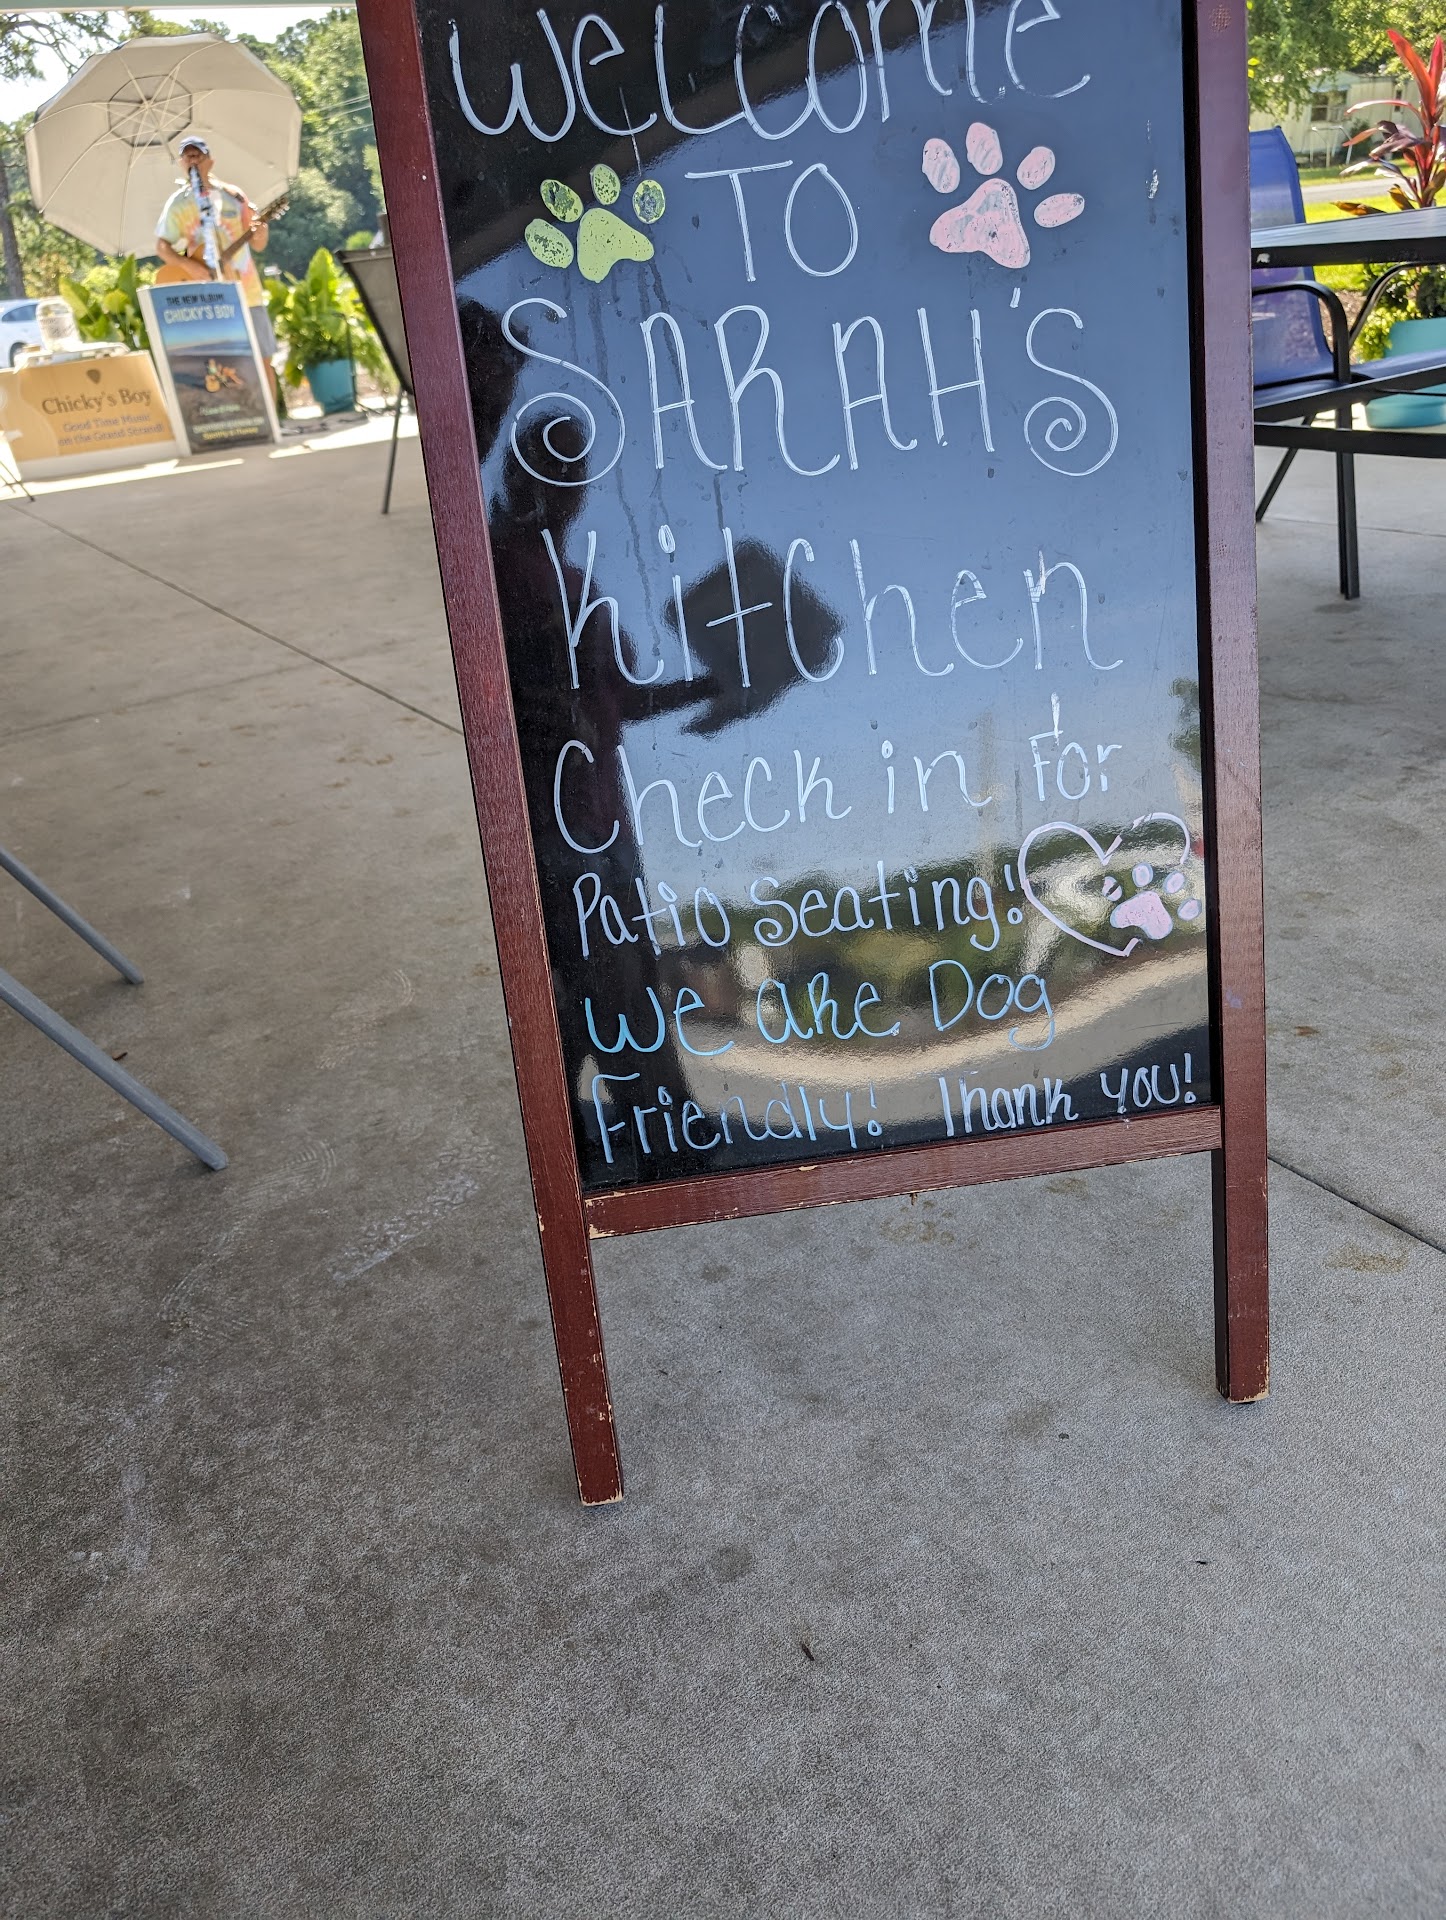 Welcome
TO
SARAH'S
Kitchen
Check in For
Patio Seating!
We are Dog
Friendly! Thank you!
THE NEW ALBUM
CHICKY'S BOY
Chicky's Boy
Good Time Music
on the Grand Strand!